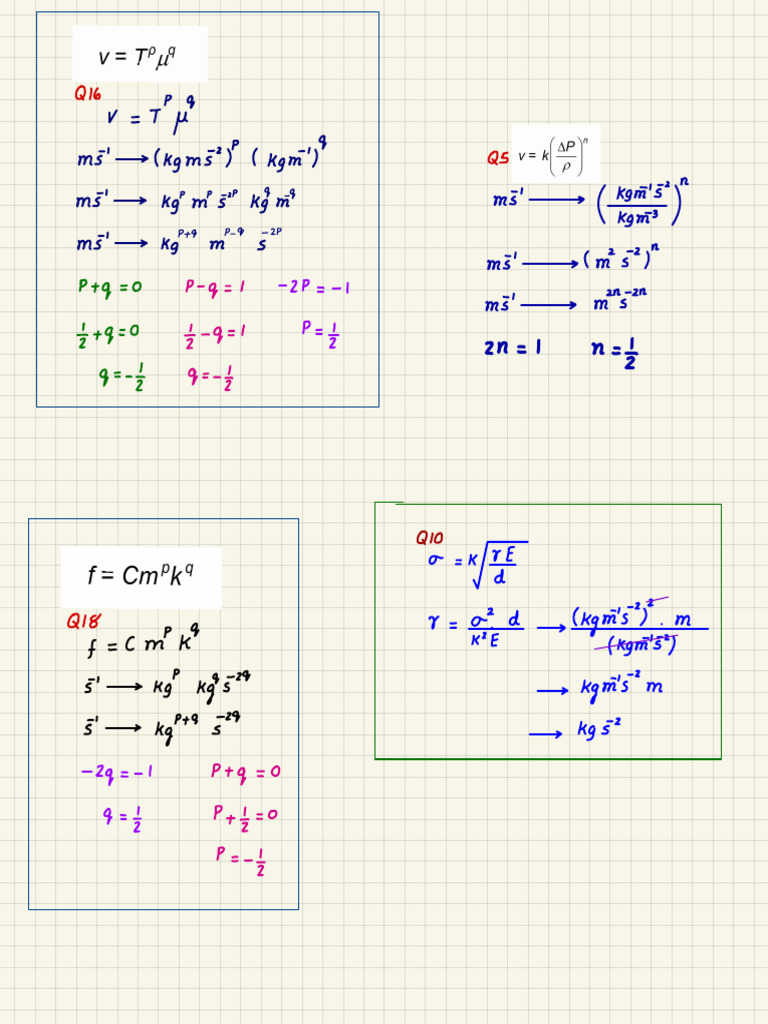 v = Tᵖμ^q
Q16
v = Tᵖ μ^q
ms⁻¹ ⟶ (kgms⁻²)ᵖ (kgm⁻¹)^q
ms⁻¹ ⟶ kgᵖ mᵖ s⁻²ᵖ kg^q m^-q
ms⁻¹ ⟶ kg^p+q m^p-q s^-2p
P+q = 0 P-q = 1 -2P = -1
1/2 + q = 0 1/2 - q = 1 P = 1/2
q = -1/2 q = -1/2
Q5 v = k(ΔP/ρ)ⁿ
ms⁻¹ ⟶ (kgm⁻¹s⁻²/kgm⁻³)ⁿ
ms⁻¹ ⟶ (m² s⁻²)ⁿ
ms⁻¹ ⟶ m²ⁿs⁻²ⁿ
2n = 1 n = 1/2
f = Cmᵖk^q
Q18
f = C mᵖ k^q
s⁻¹ ⟶ kgᵖ kg^q s^-2q
s⁻¹ ⟶ kg^p+q s^-2q
-2q = -1 P+q = 0
q = 1/2 P + 1/2 = 0
P = -1/2
Q10
σ = K√(γE/d)
γ = σ². d/K²E ⟶ (kgm⁻¹s⁻²)². m/(kgm⁻¹s⁻²)
⟶ kgm⁻¹s⁻² m
⟶ kgs⁻²